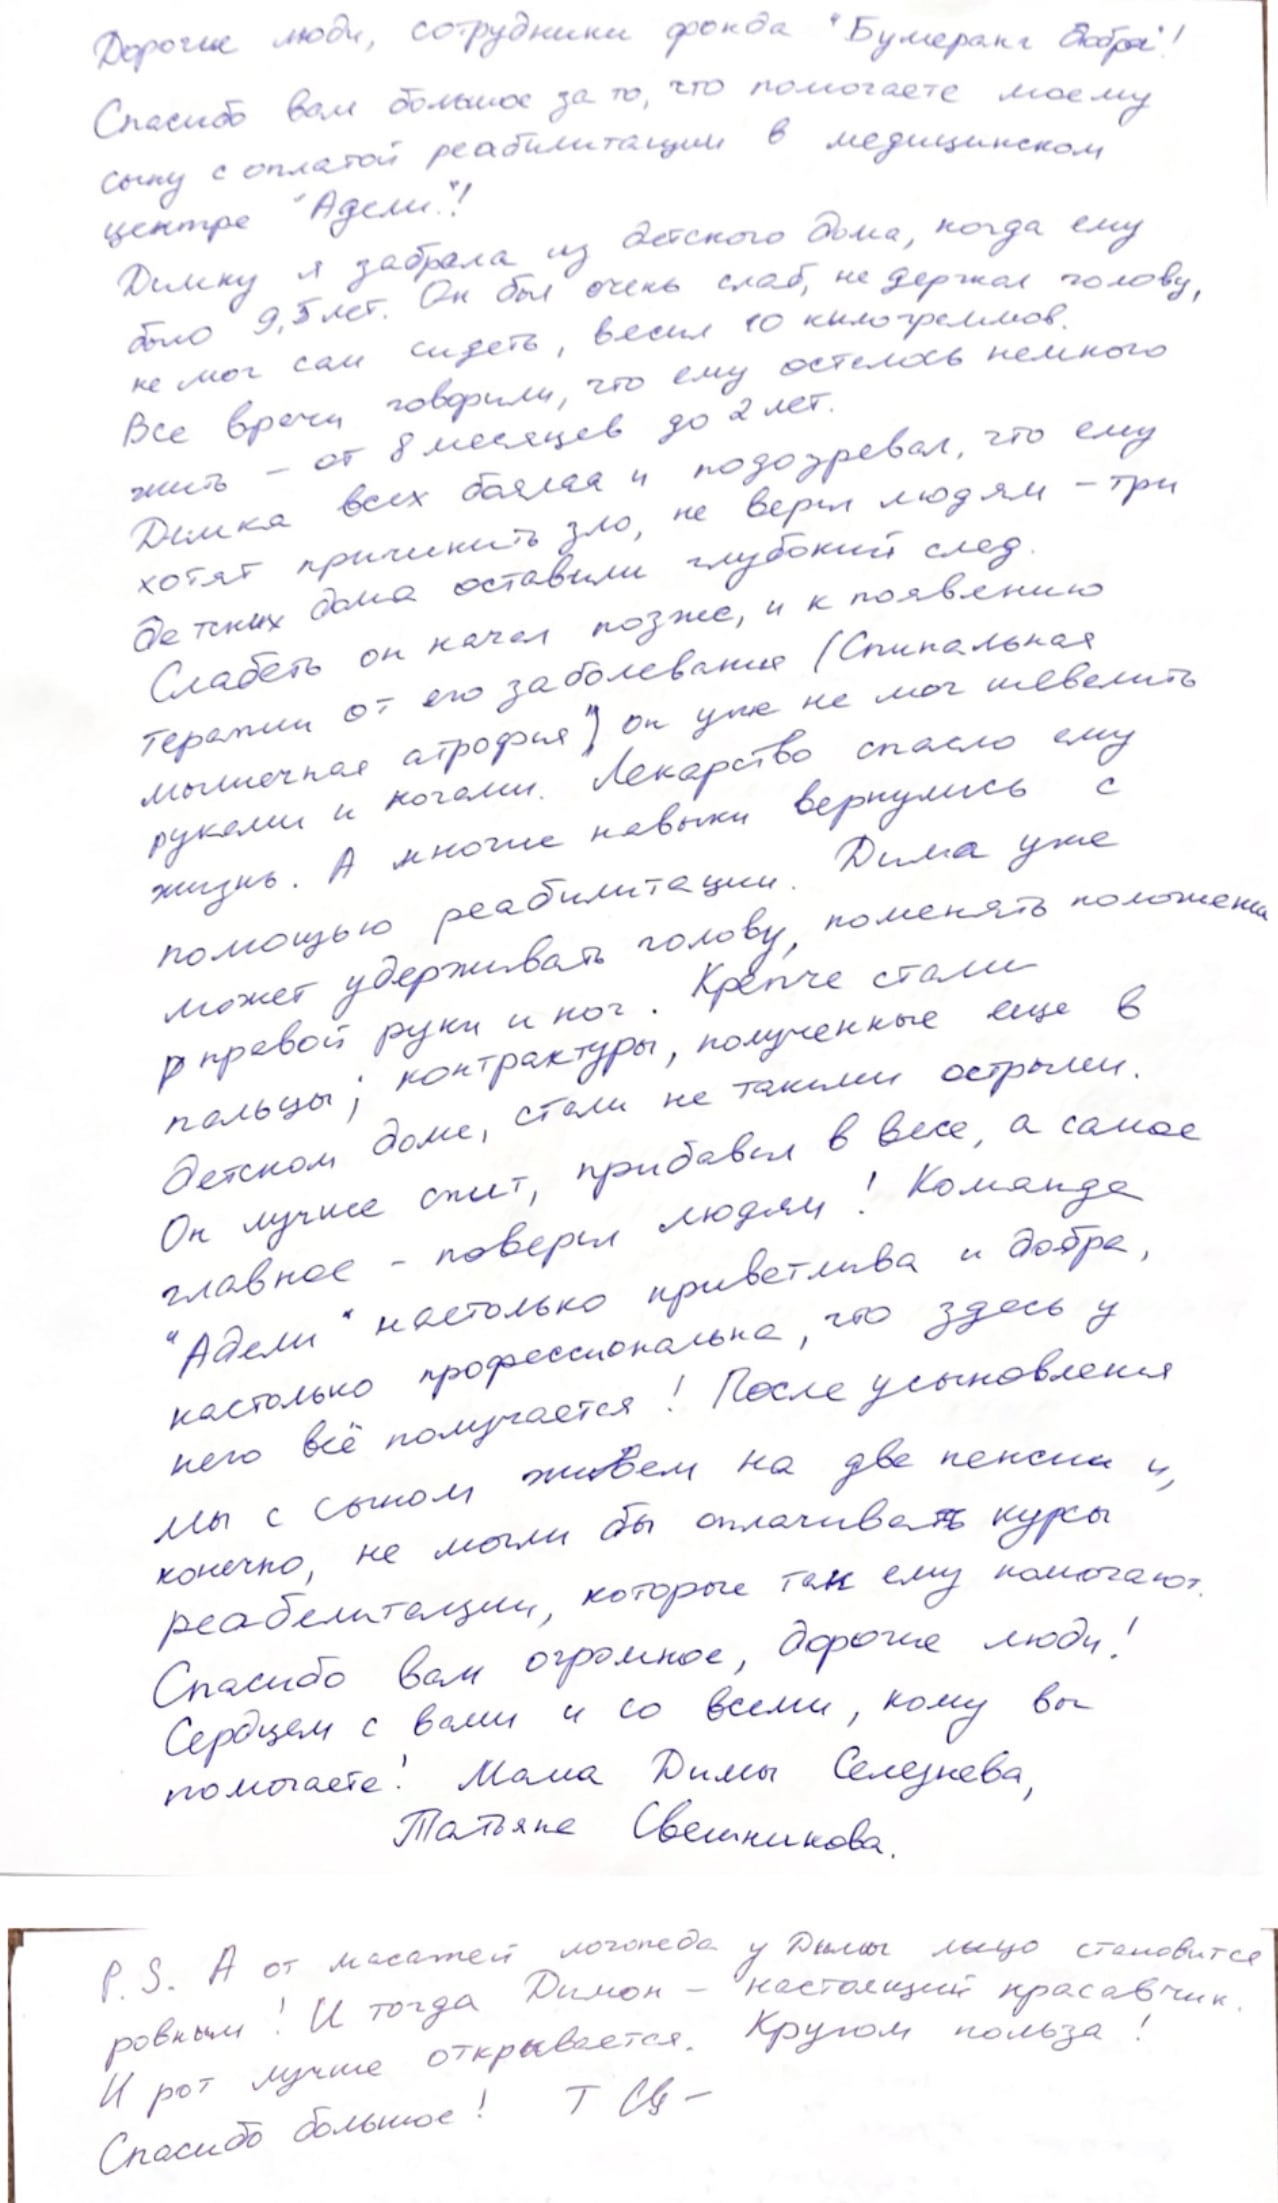 Дорогие люди, сотрудники фонда "Бумеранг добра"!
Спасибо вам большое за то, что помогаете моему
сыну с оплатой реабилитации в медицинском
центре "Адели"!
Димку я забрала из детского дома, когда ему
было 9,5 лет. Он был очень слаб, не держал голову,
не мог сам сидеть, весил 10 килограммов.
Все врачи говорили, что ему осталось немного
жить - от 8 месяцев до 2 лет.
Димка всех боялся и подозревал, что ему
хотят причинить зло, не верил людям - три
детских дома оставили глубокий след.
Слабеть он начал позже, и к появлению
терапии от его заболевания (Спинальная
мышечная атрофия") он уже не мог шевелить
руками и ногами. Лекарство спасло ему
жизнь. А многие навыки вернулись с
помощью реабилитации. Дима уже
может удерживать голову, поменять положение
правой руки и ног. Крепче стали
пальцы; контрактуры, полученные еще в
детском доме, стали не такими острыми.
Он лучше спит, прибавил в весе, а самое
главное - поверил людям! Команда
"Адели" настолько приветлива и добра,
настолько профессиональна, что здесь у
него всё получается! После усыновления
мы с сыном живем на две пенсии и,
конечно, не могли бы оплачивать курсы
реабелитации, которые так ему помогают.
Спасибо вам огромное, дорогие люди!
Сердцем с вами и со всеми, кому вы
помогаете! Мама Димы Селезнева,
Татьяна Свешникова.
P.S. А от масажей логопеда у Димы лицо становится
ровным! И тогда Димон - настоящий красавчик.
И рот лучше открывается. Кругом польза!
Спасибо большое!